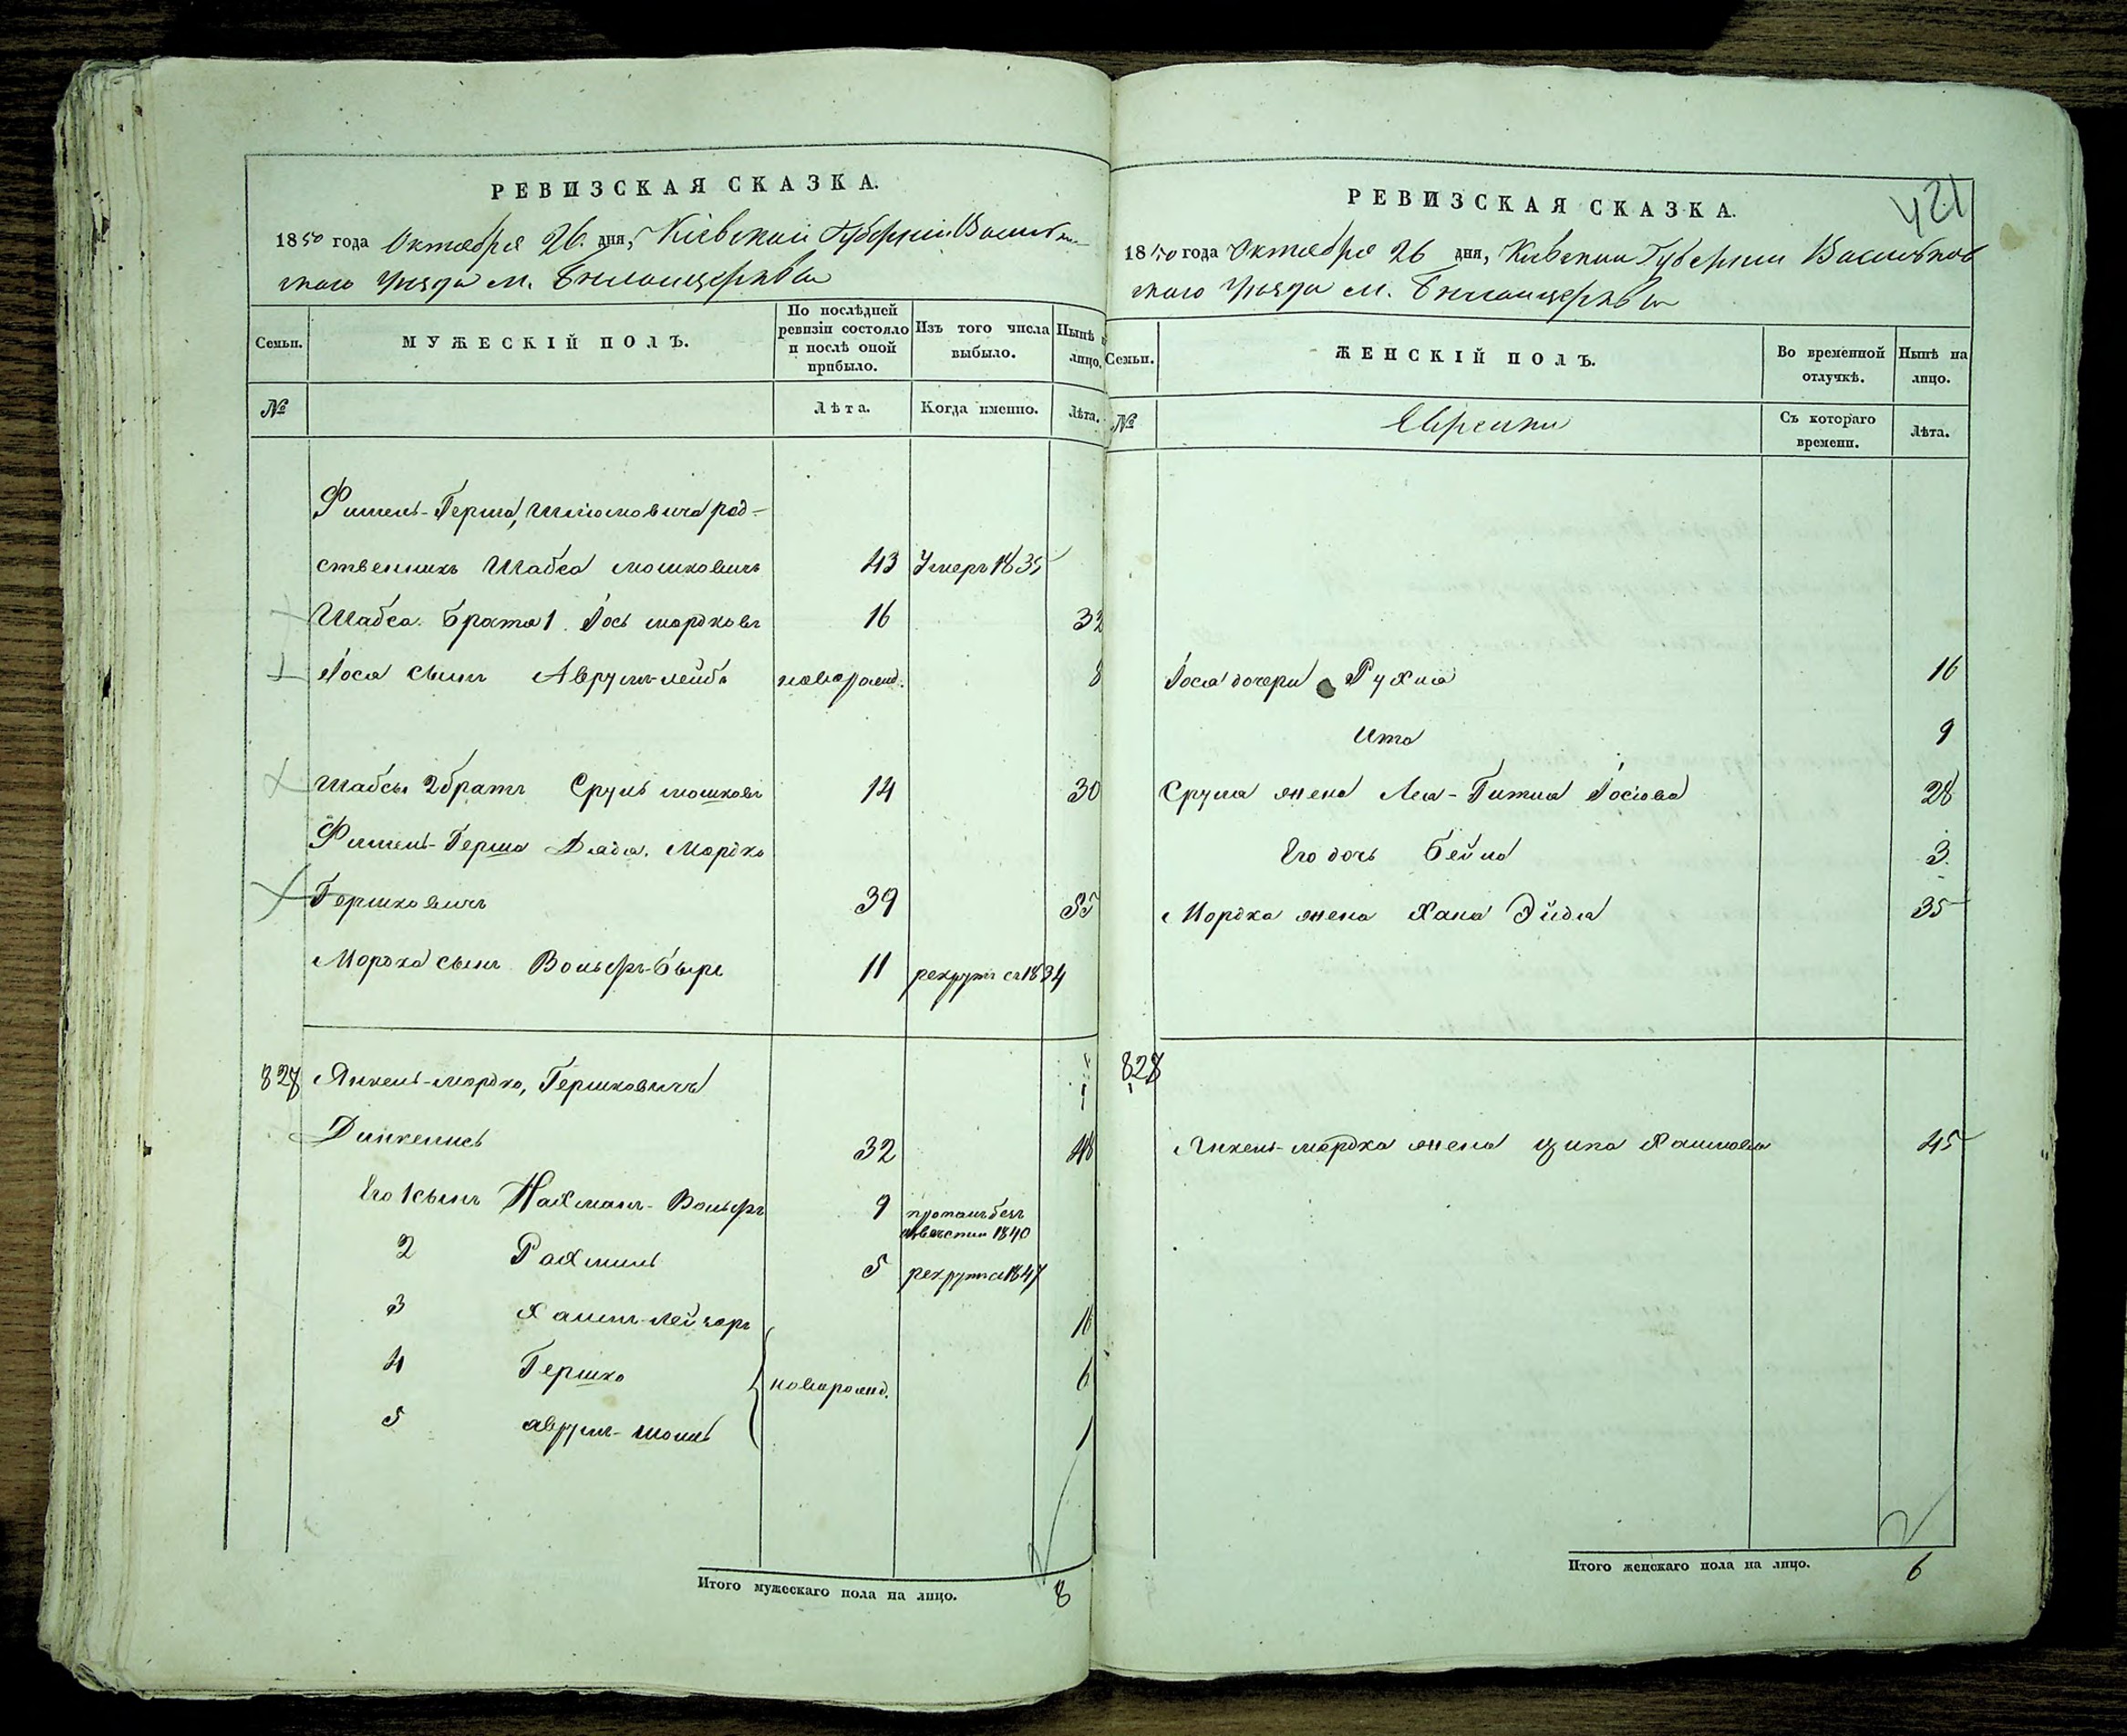 РЕВИЗСКАЯ СКАЗКА.
1850 года Октября 26. дня, Кіевской Губерніи Васильков-
скаго Уезда м. Белойцеркви
Семьи.
МУЖЕСКІЙ ПОЛЪ.
По послѣдней ревизіи состояло и послѣ оной прибыло.
Изъ того числа выбыло.
Нынѣ на лицо.
№
Лѣта.
Когда именно.
Лѣта.
Фишель-Герша, Шлiомовича род-
ственникъ Шабса Мошковичъ 43 Умеръ 1835
Шабса брата 1 Iось Мордковъ 16 32
Iося сынъ Аврумъ-лейба новорожд. 8
Шабсы 2 братъ Сруль Мошковъ 14 30
Фишель-Герша Дядя. Мордко
Гершковичъ 39 55
Мордка сынъ Вольфъ-Беръ 11 рекрут. съ 1834
827 Янкель-мордко, Гершковичъ
Динкелисъ 32 48
Его 1 сынъ Нахманъ-Вольфъ 9 пропалъ безъ
известия 1840
2 Рахмиль 5 рекрут. съ 1847
3 Хаимъ-лейзоръ 16
4 Гершко новорожд. 6
5 аврум- 1
Итого мужескаго пола на лицо. 8
421
РЕВИЗСКАЯ СКАЗКА.
1850 года Октября 26 дня, Кіевской Губерніи Васильков
скаго Уезда м. Белойцеркви
Семьи.
ЖЕНСКІЙ ПОЛЪ.
Во временной отлучкѣ.
Нынѣ на лицо.
№
Еврейки
Съ котораго времени.
Лѣта.
Iося дочери Рухля 16
Ита 9
Сруля жена Лея-Гитля Iосiова 28
Его дочь Бейла 3.
Мордка жена Хана Эйдля 35
828
Янкель-мордка жена ципа Хаимова 45
Итого женскаго пола на лицо. 6